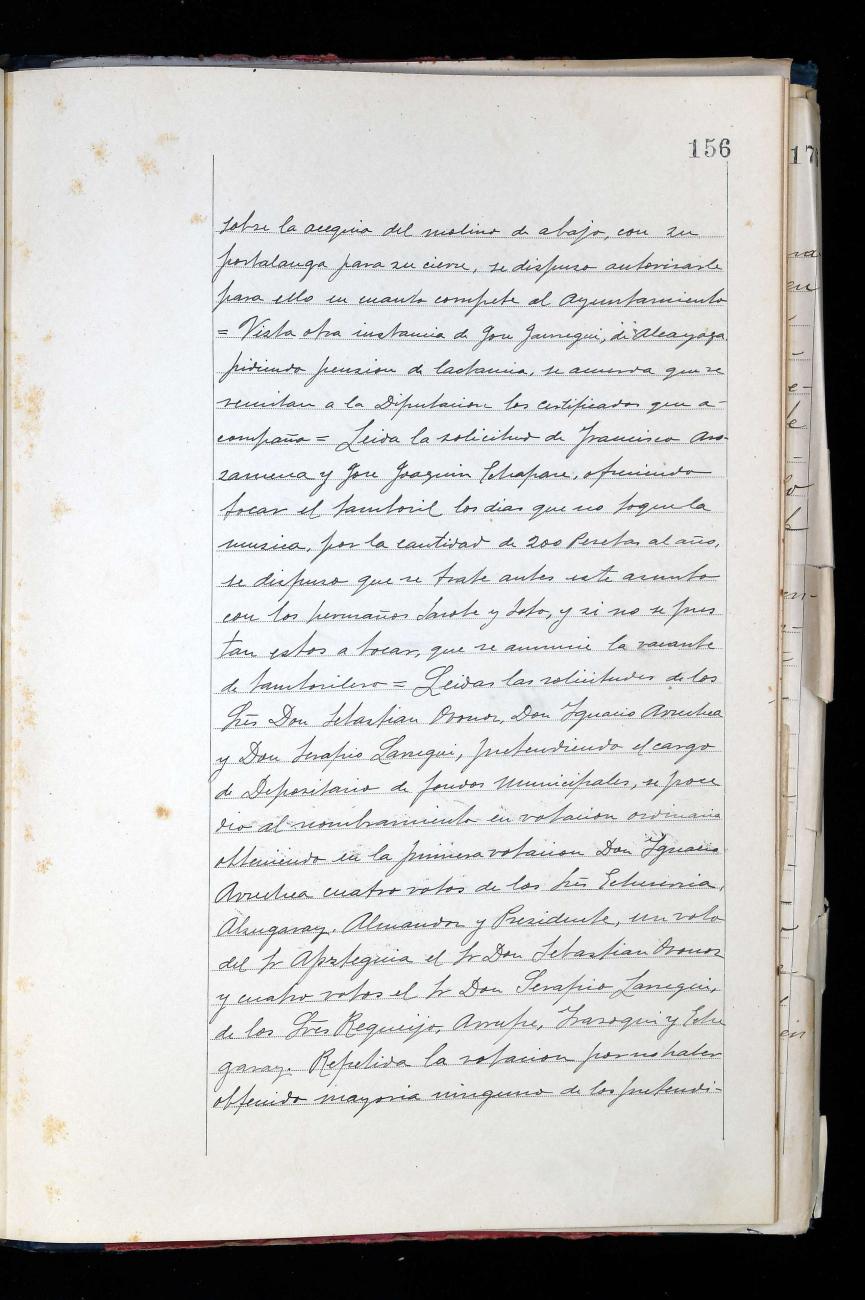 156
sobre la acequia del molino de abajo, con su
portalanga para su cierre, se dispuso autorisarle
para ello en cuanto compete al Ayuntamiento
= Vista otra instancia de Jose Jauregui, de Alcayaga
pidiendo pension de lactancia, se acuerda que se
remitan a la Diputacion los certificados que a-
compaña = Leida la solicitud de Francisco Aro-
zamena y Jose Joaquin Echapare, ofreciendo
tocar el tamboril los dias que no toque la
musica, por la cantidad de 200 Pesetas al año,
se dispuso que se trate antes este asunto
con los hermaños Larote y Soto, y si no se pres
tan estos a tocar, que se anuncie la vacante
de tamborilero = Leidas las solicitudes de los
Sres Don Sebastian Oronoz, Don Ignacio Arrechea
y Don Serapio Larregui, pretendiendo el cargo
de Depositario de fondos Municipales, se proce
dio al nombramiento en votacion ordinaria
obteniendo en la primera votacion Don Ignacio
Arrechea cuatro votos de los Sres Echeverria,
Alzugaray, Almandoz y Presidente, un voto
del Sr Apezteguia el Sr Don Sebastian Oronoz
y cuatro votos el Sr Don Serapio Larregui,
de los Sres Requeijo, Arrupe, Irazoqui y Eche
garay. Repetida la votacion por no haber
obtenido mayoria ninguno de los pretendi-